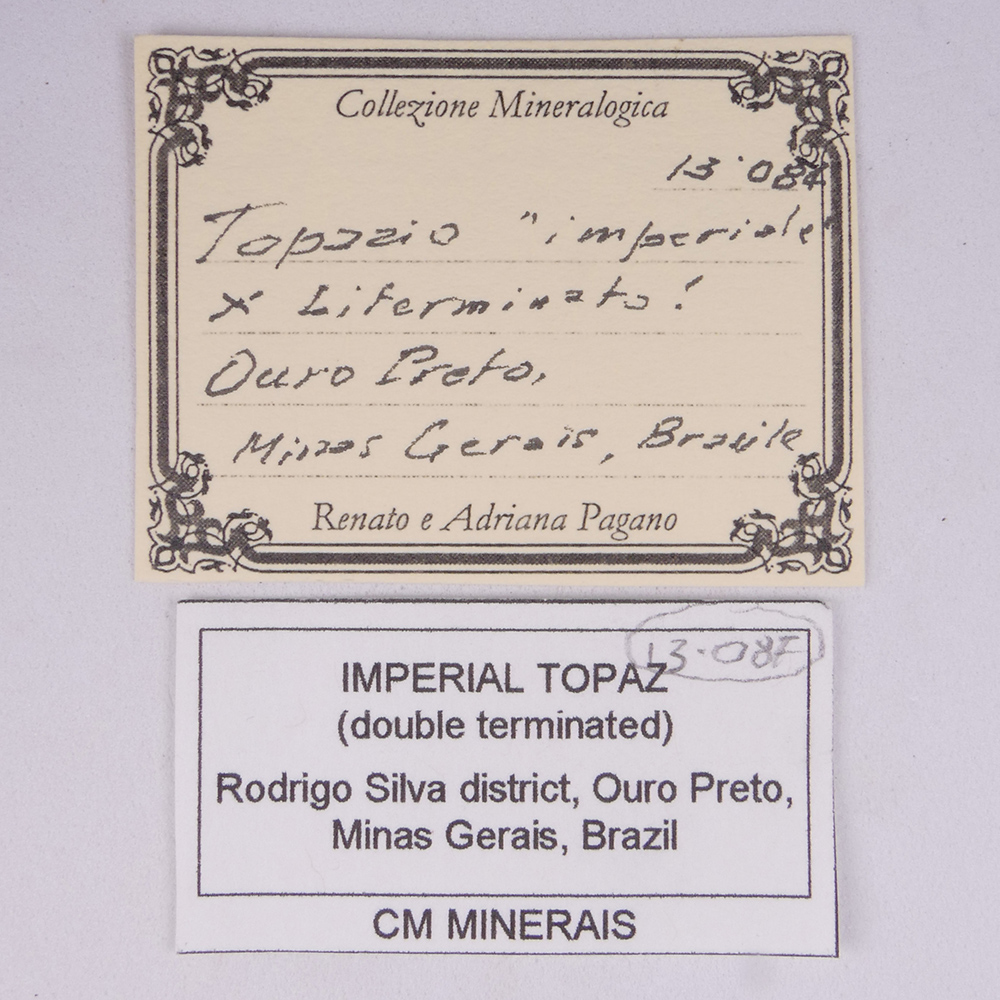 Collezione Mineralogica
13·087
Topazio "imperiale"
X biterminato!
Ouro Preto,
Minas Gerais, Brasile
Renato e Adriana Pagano
13-087
IMPERIAL TOPAZ
(double terminated)
Rodrigo Silva district, Ouro Preto,
Minas Gerais, Brazil
CM MINERAIS